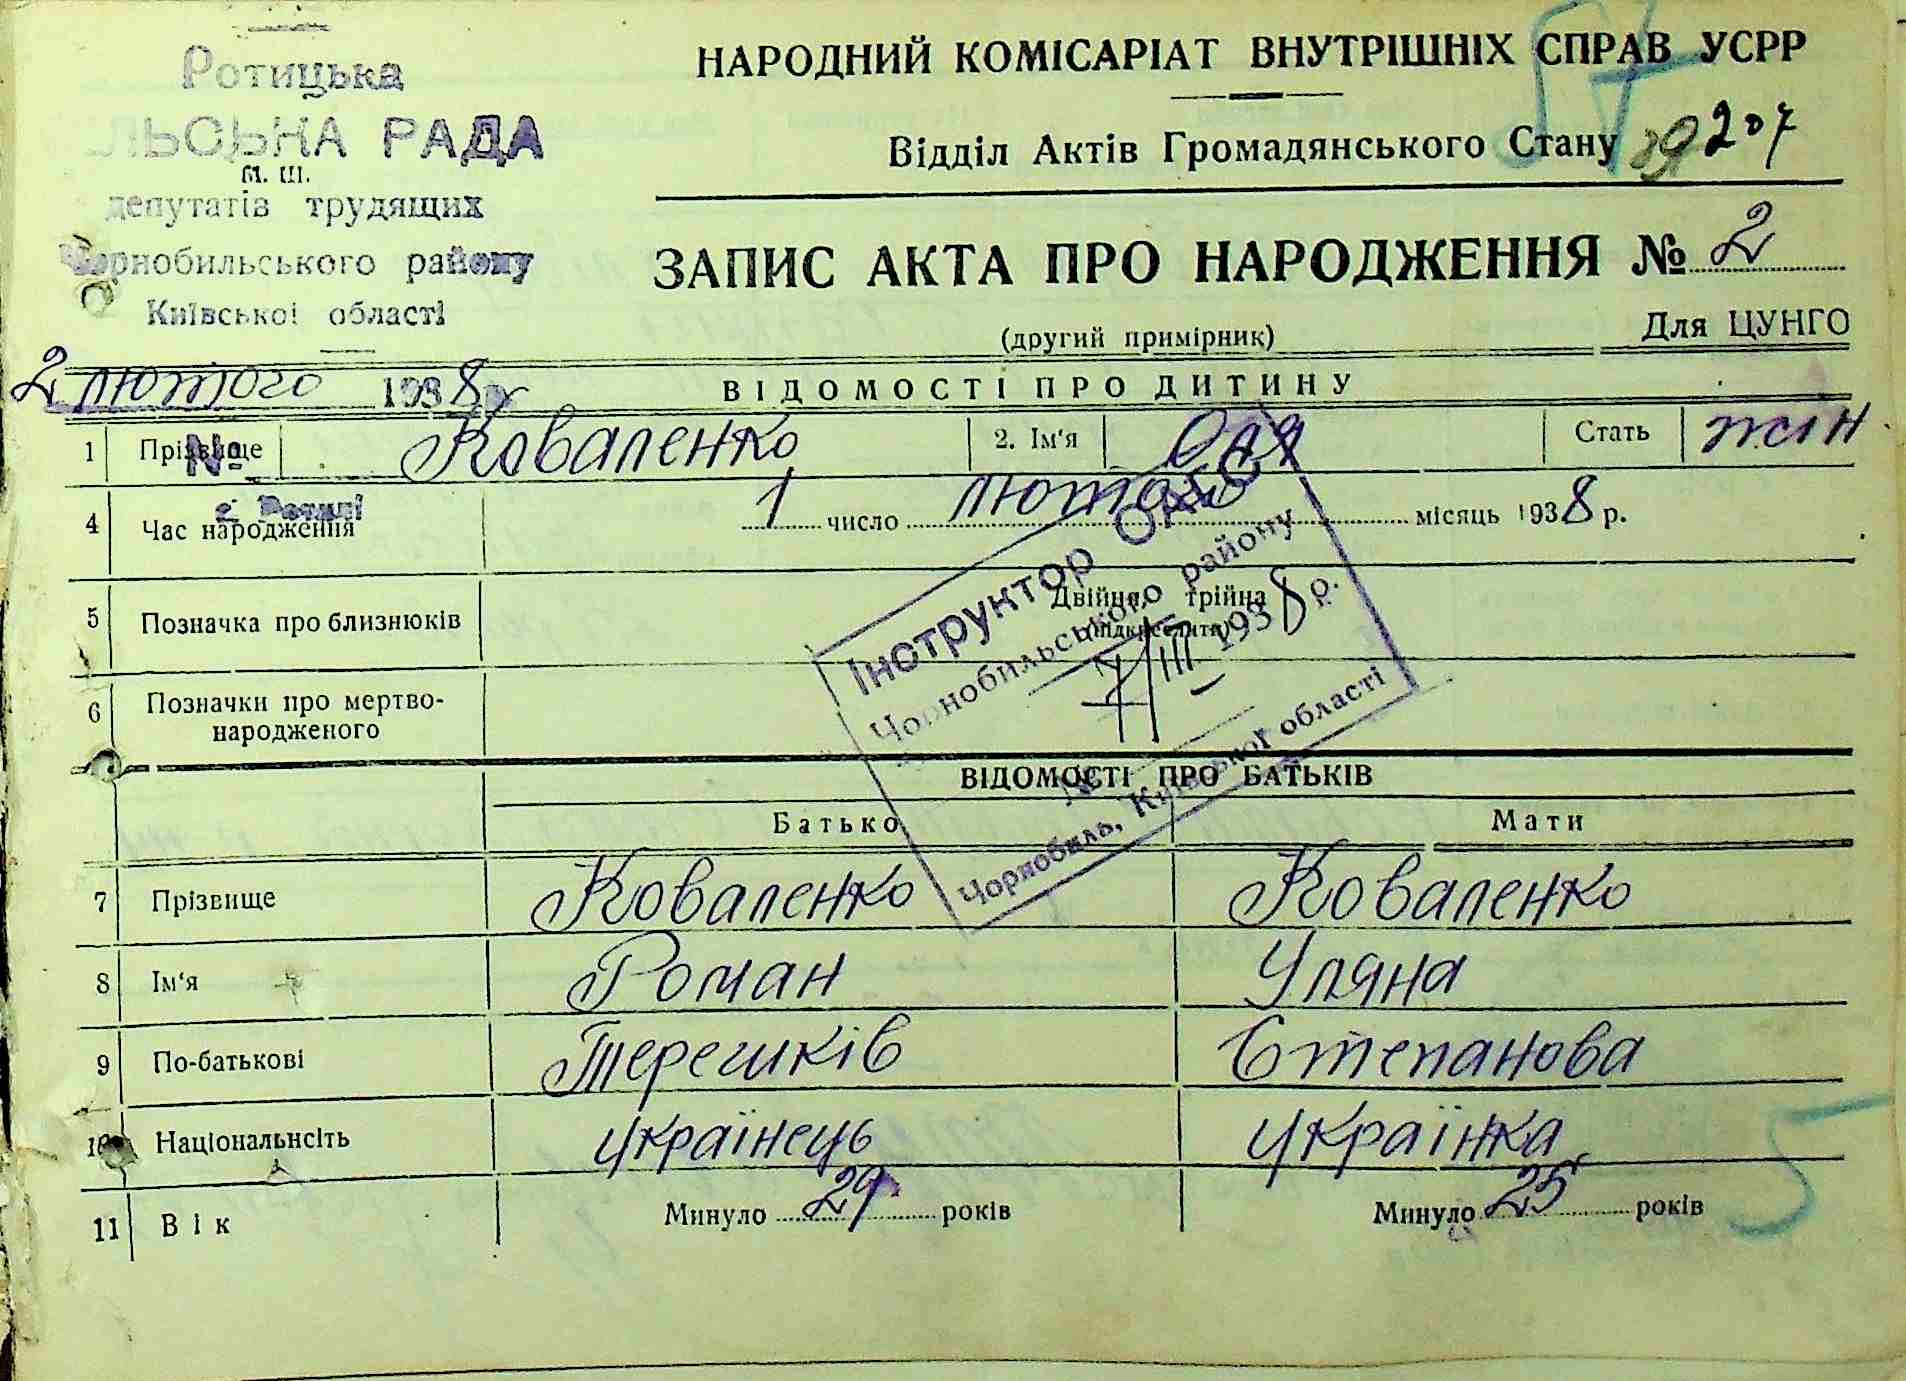 Ротицька
ЛЬСЬКА РАДА
депутатів трудящих
Чорнобильського району
Київської області
2 лютого 1938 р
№
с Ротичі
57
НАРОДНИЙ КОМІСАРІАТ ВНУТРІШНІХ СПРАВ УСРР
Відділ Актів Громадянського Стану 207
ЗАПИС АКТА ПРО НАРОДЖЕННЯ № 2
(другий примірник)
Для ЦУНГО
ВІДОМОСТІ ПРО ДИТИНУ
1 Прізвище Коваленко 2. Ім'я Оля Стать жін
4 Час народження 1 число лютого місяць 1938 р.
5 Позначка про близнюків Двійня, трійня
(підкреслити)
6 Позначки про мертво-
народженого
Інструктор ОАГС
Чорнобильського району
7/III 1938 р.
№
Чорнобиль, Київської області
ВІДОМОСТІ ПРО БАТЬКІВ
Батько Мати
7 Прізвище Коваленко Коваленко
8 Ім'я Роман Уляна
9 По-батькові Терешків Степанова
10 Національність українець українка
11 Вік Минуло 29 років Минуло 25 років
5